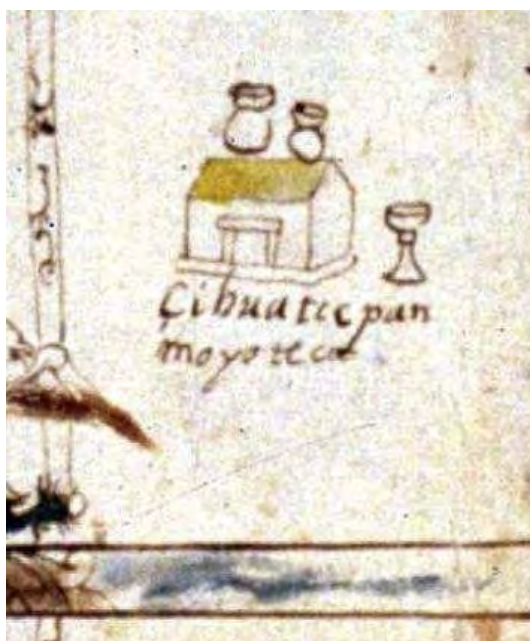 Çihuatecpan
moyoteca